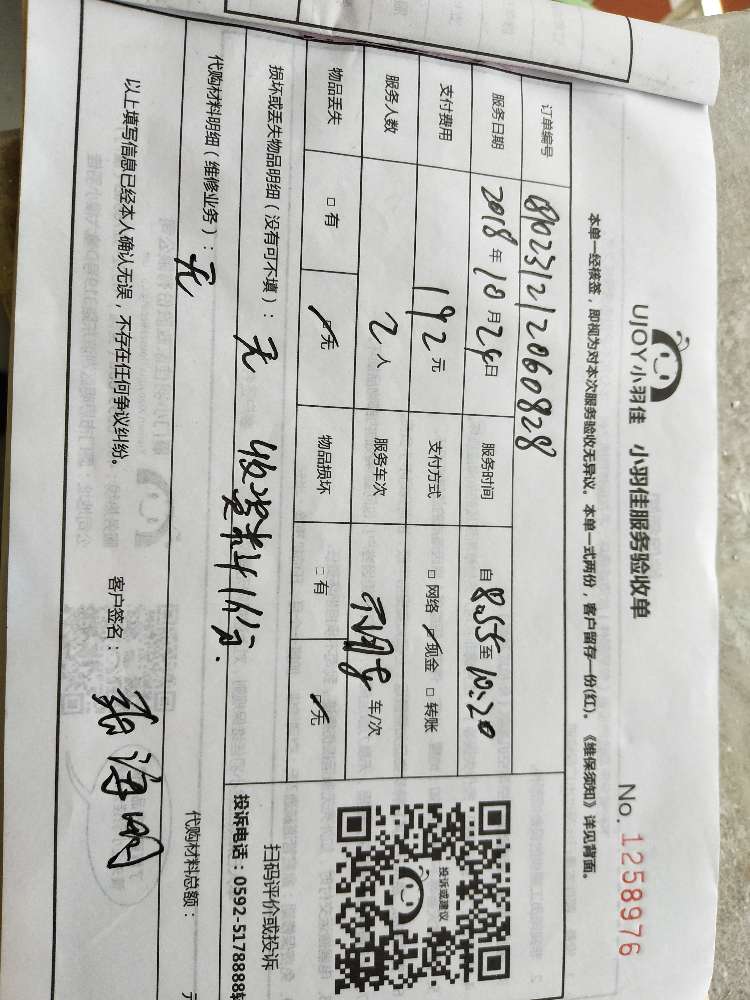 UJOY小羽佳 小羽佳服务验收单
No. 1258976
本单一经核签，即视为对本次服务验收无异议。本单一式两份，客户留存一份(红)。《维保须知》详见背面。
订单编号
服务日期 2018年10月24日 服务时间 自8:55至10:20
支付费用 192元 支付方式 □网络 ☑现金 □转账
服务人数 2人 服务车次 车/次
物品丢失 □有 ☑无 物品损坏 □有 ☑无
损坏或丢失物品明细（没有可不填）：无
代购材料明细（维修业务）：无
代购材料总额： 元
以上填写信息已经本人确认无误，不存在任何争议纠纷。
客户签名：
投诉或建议
扫码评价或投诉
投诉电话：0592-5178888转